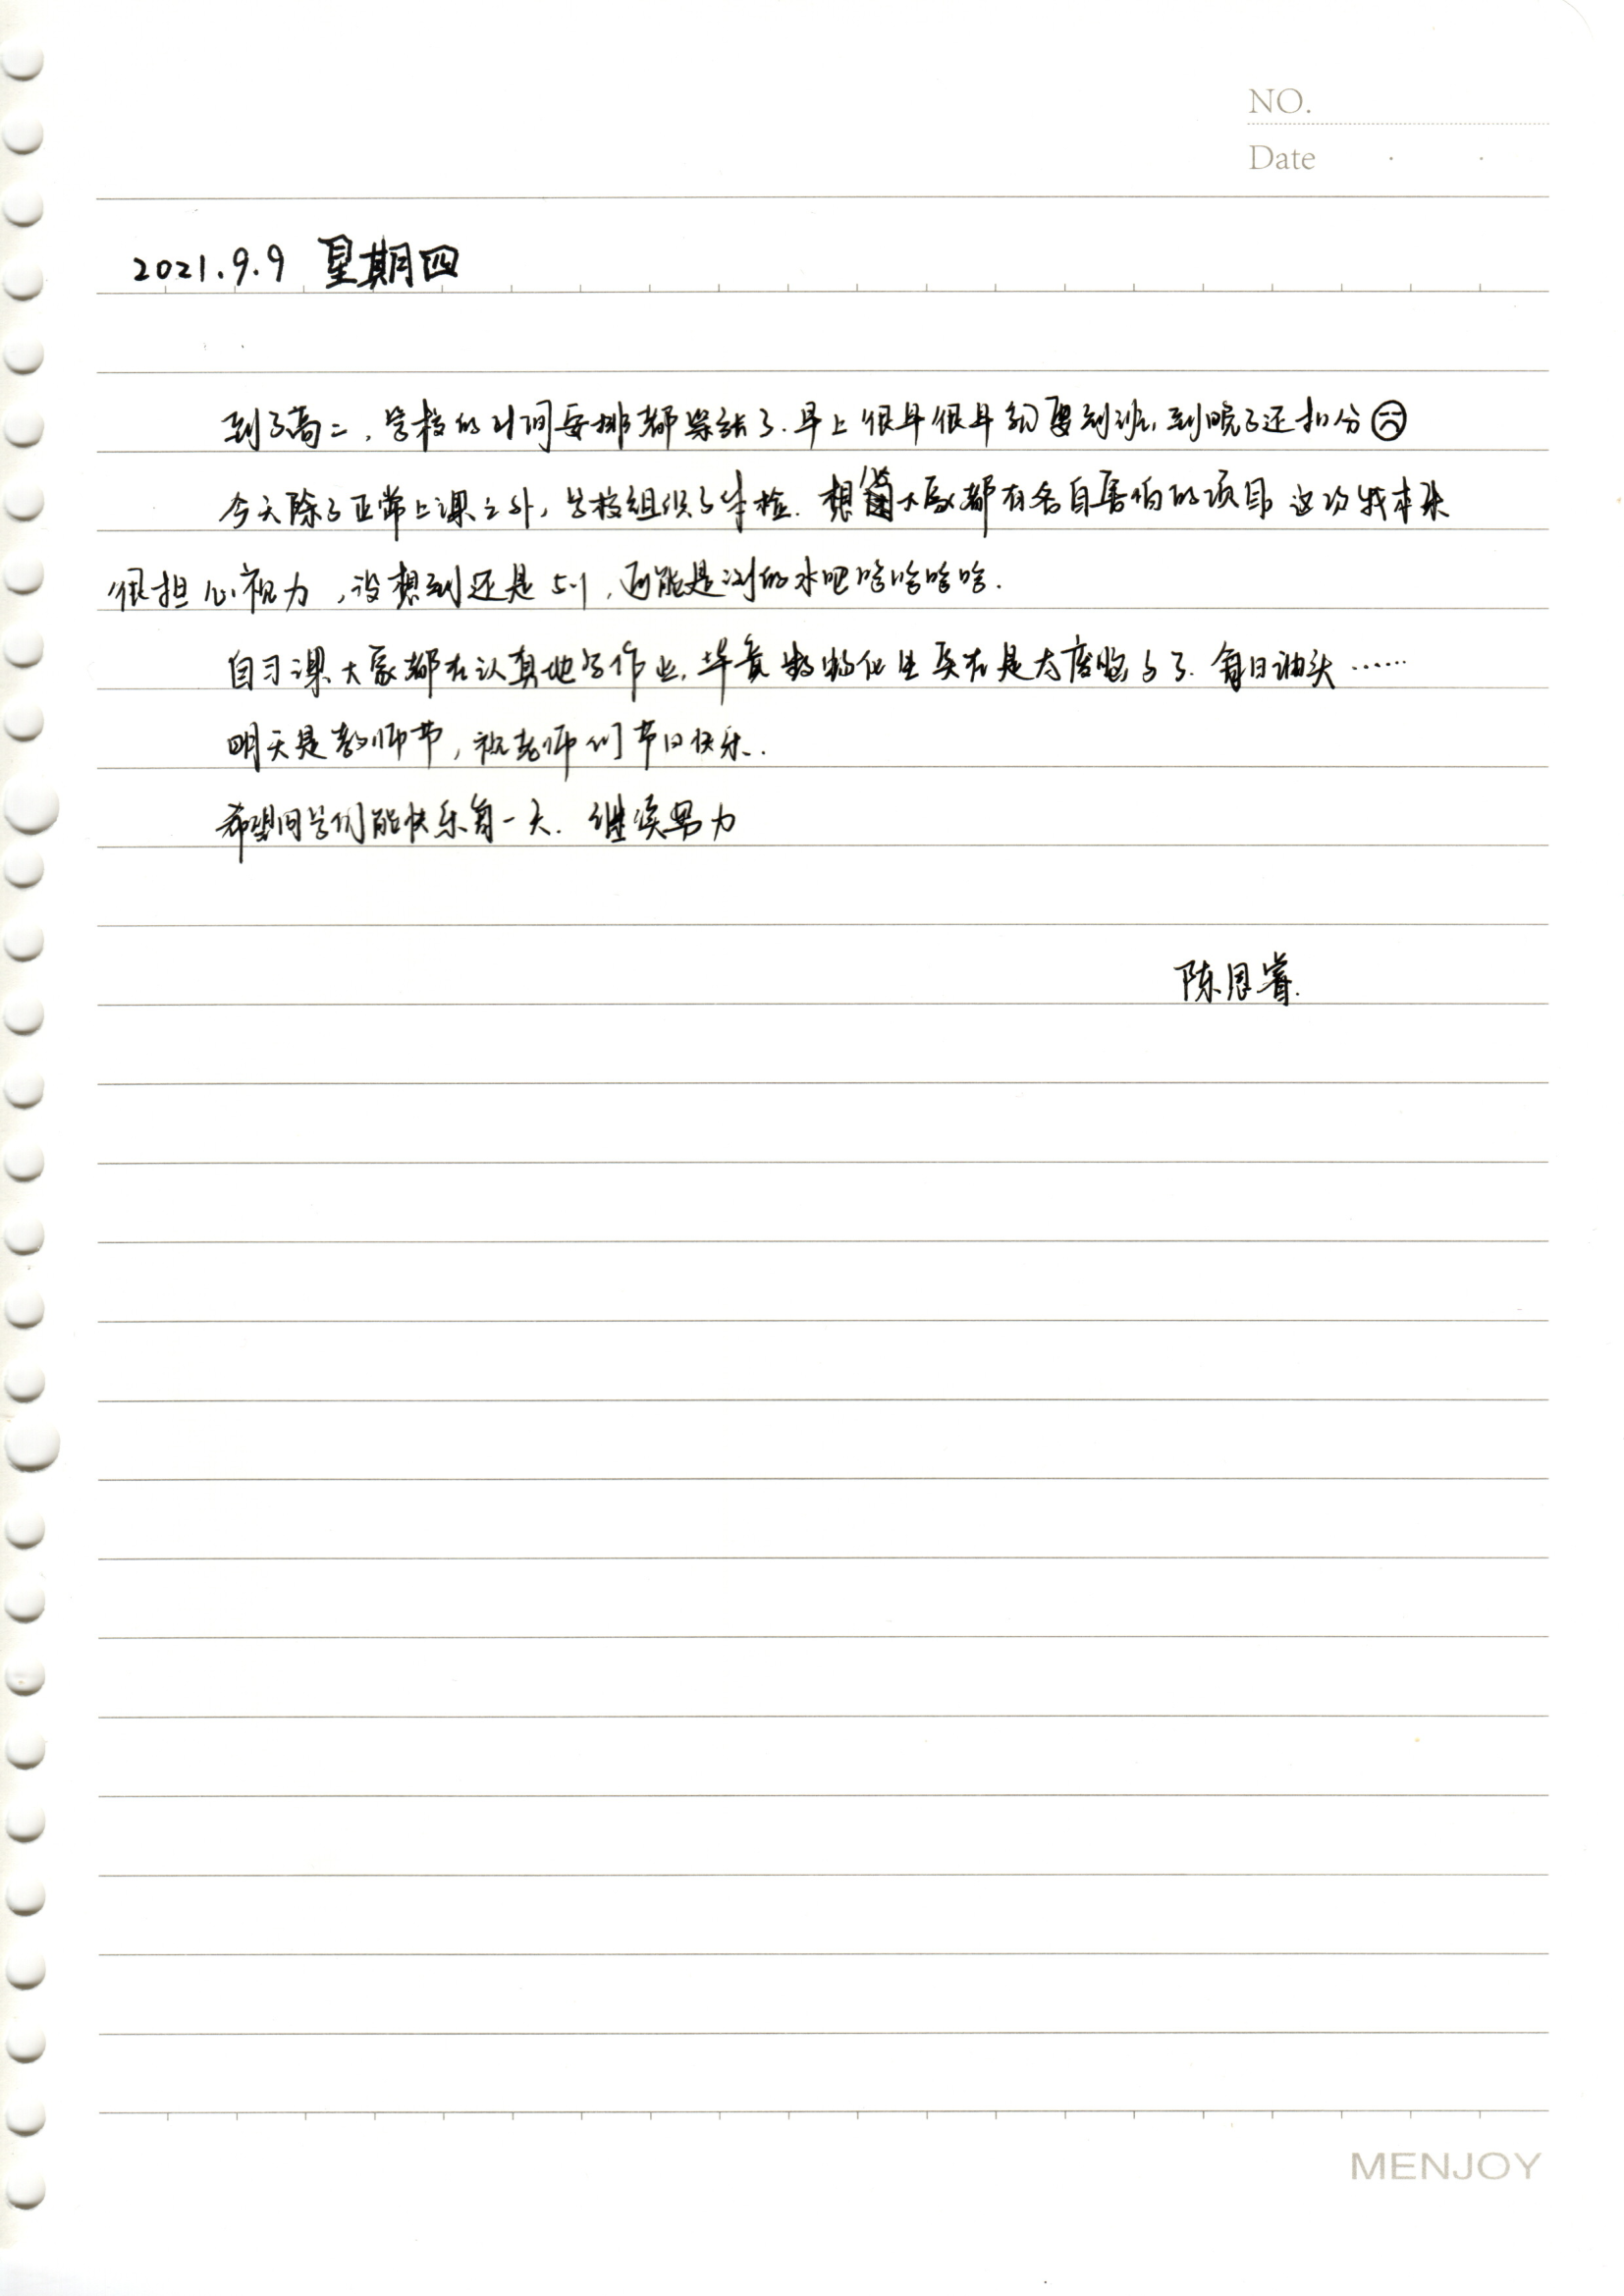 NO.
Date
2021.9.9 星期四
到了高二，学校的时间安排都紧结了.早上很早很早就要到班,到晚了还扣分
今天除了正常上课之外，学校组织了体检.想必大家都有各自害怕的项目 这次我本来
很担心视力，没想到还是5.1，可能是测的水吧哈哈哈哈.
自习课大家都在认真地写作业,毕竟数物化生实在是太
了.每日油头……
明天是教师节，祝老师们节日快乐.
希望同学们能快乐每一天.继续努力
陈恩睿.
MENJOY